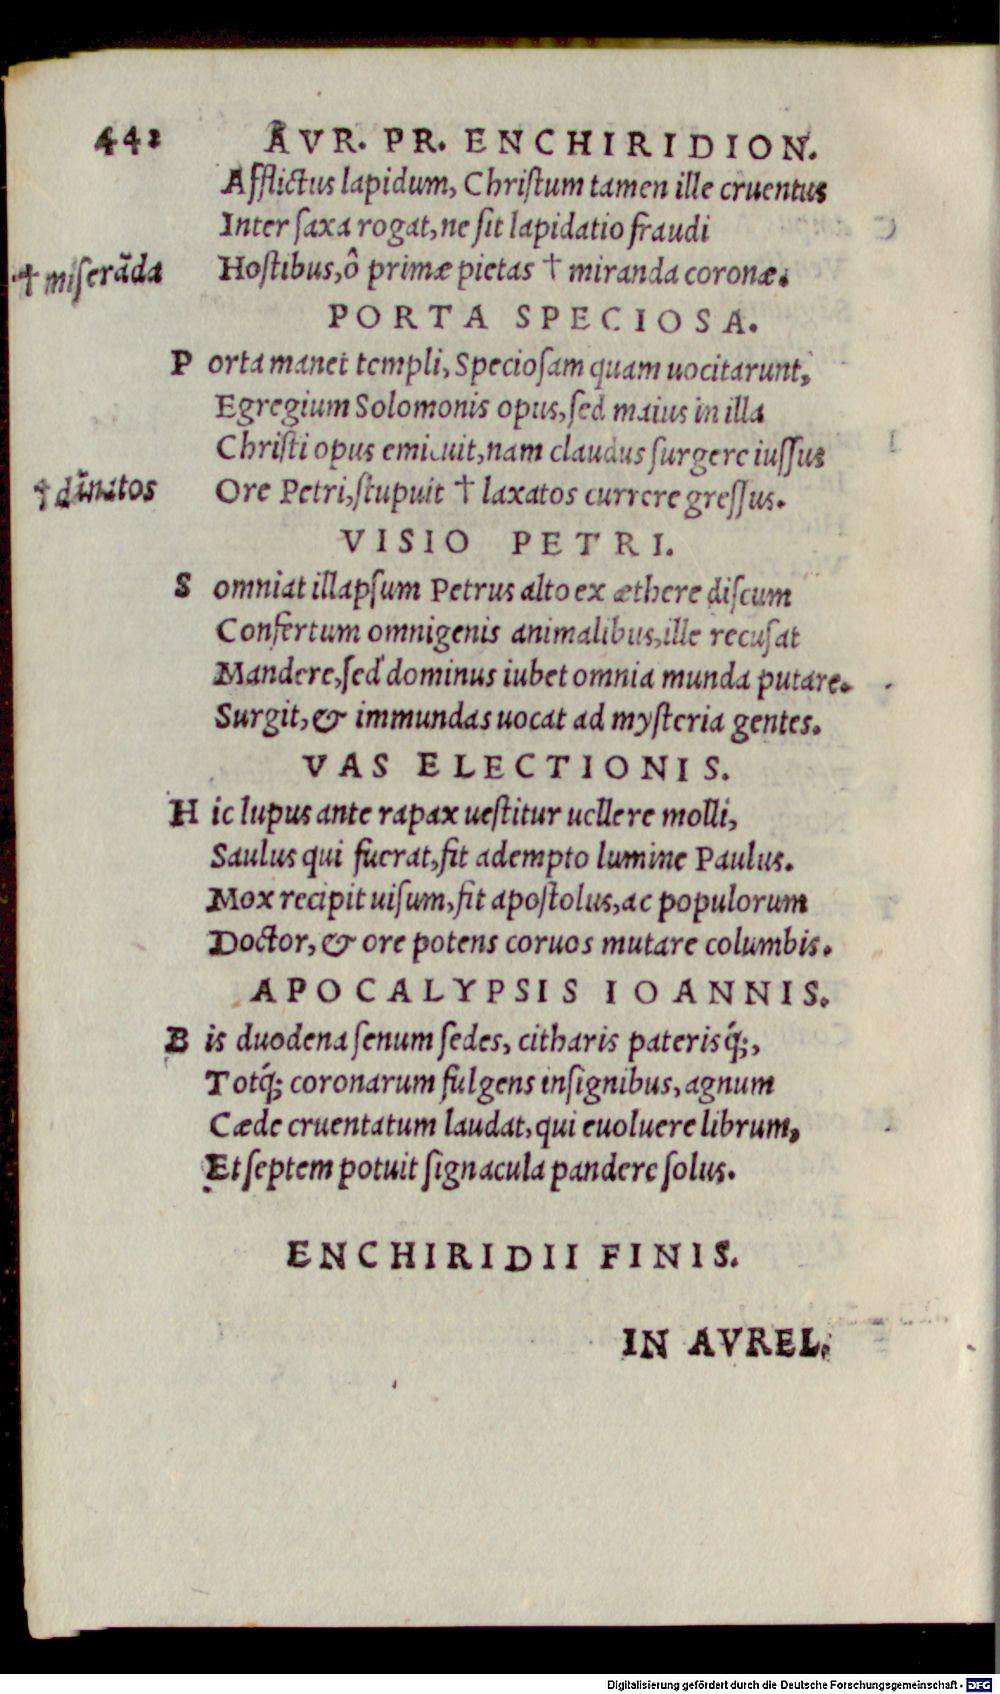 442 AVR. PR. ENCHIRIDION.
Afflictus lapidum, Chriſtum tamen ille cruentus
Inter ſaxa rogat, ne ſit lapidatio fraudi
† miſerãda Hoſtibus, ô primæ pietas † miranda coronæ.
PORTA SPECIOSA.
P orta manet templi, Specioſam quam uocitarunt,
Egregium Solomonis opus, ſed maius in illa
Chriſti opus emicuit, nam claudus ſurgere iuſſus
Ore Petri, ſtupuit † laxatos currere greſſus.
VISIO PETRI.
S omniat illapſum Petrus alto ex æthere diſcum
Confertum omnigenis animalibus, ille recuſat
Mandere, ſed dominus iubet omnia munda putare.
Surgit, & immundas uocat ad myſteria gentes.
VAS ELECTIONIS.
H ic lupus ante rapax ueſtitur uellere molli,
Saulus qui fuerat, fit adempto lumine Paulus.
Mox recipit uiſum, fit apoſtolus, ac populorum
Doctor, & ore potens coruos mutare columbis.
APOCALYPSIS IOANNIS.
B is duodena ſenum ſedes, citharis paterisq́;,
Totq́; coronarum fulgens inſignibus, agnum
Cæde cruentatum laudat, qui euoluere librum,
Et ſeptem potuit ſignacula pandere ſolus.
ENCHIRIDII FINIS.
IN AVREL.
Digitalisierung gefördert durch die Deutsche Forschungsgemeinschaft - DFG